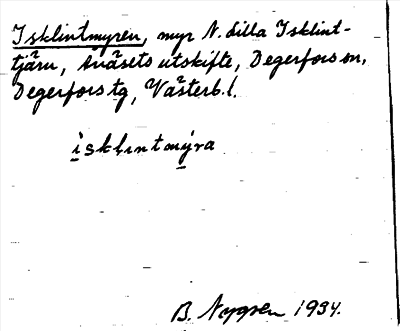 Isklintmyren, myr N. Lilla Isklint-
tjärn, Ånäsets utskifte, Degerfors sn,
Degerfors tg, Västerb. l.
ı̀sklıntmýra
B. Nygren 1934.